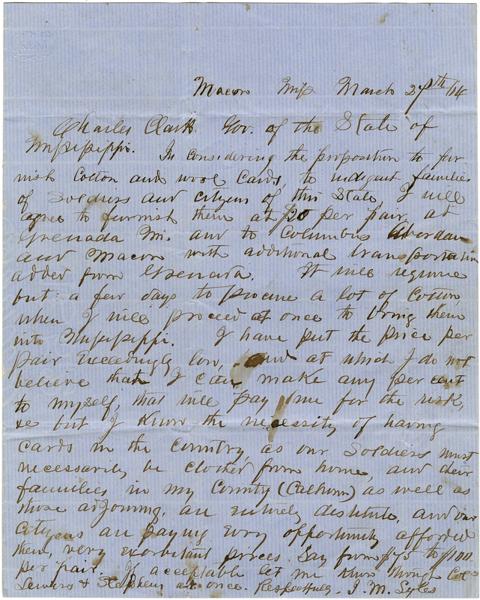 Macon Miss March 27th /64
Charles Clark Gov. of the State of
Mississippi. In considering the proposition to fur
nish Cotton and wool cards, to indigent families
of Soldiers and citizens of this State I will
agree to furnish them at per pair, at
Grenada Mi. and to Columbus Aberdeen
and Macon with additional transportation
added from Grenada. It will require
but a few days to procure a lot of Cotton,
when I will proceed at once to bring them
into Mississippi. I have put the price per
pair Exceedingly low, and at which I do not
believe that I can make any per cent
to myself, that will pay me for the risk,
&c but I know the necessity of having
cards in the Country, as our Soldiers must
necessarily be clothed from home, and their
families in my County (Calhoun) as well as
those adjoining, are entirely destitute, and our
Citizens are paying every opportunity afforded
them, very exorbitant prices. Say from to $100
per pair. If acceptable let me know through Col
& Stephens at once. Respectfully. J. M. Lyles